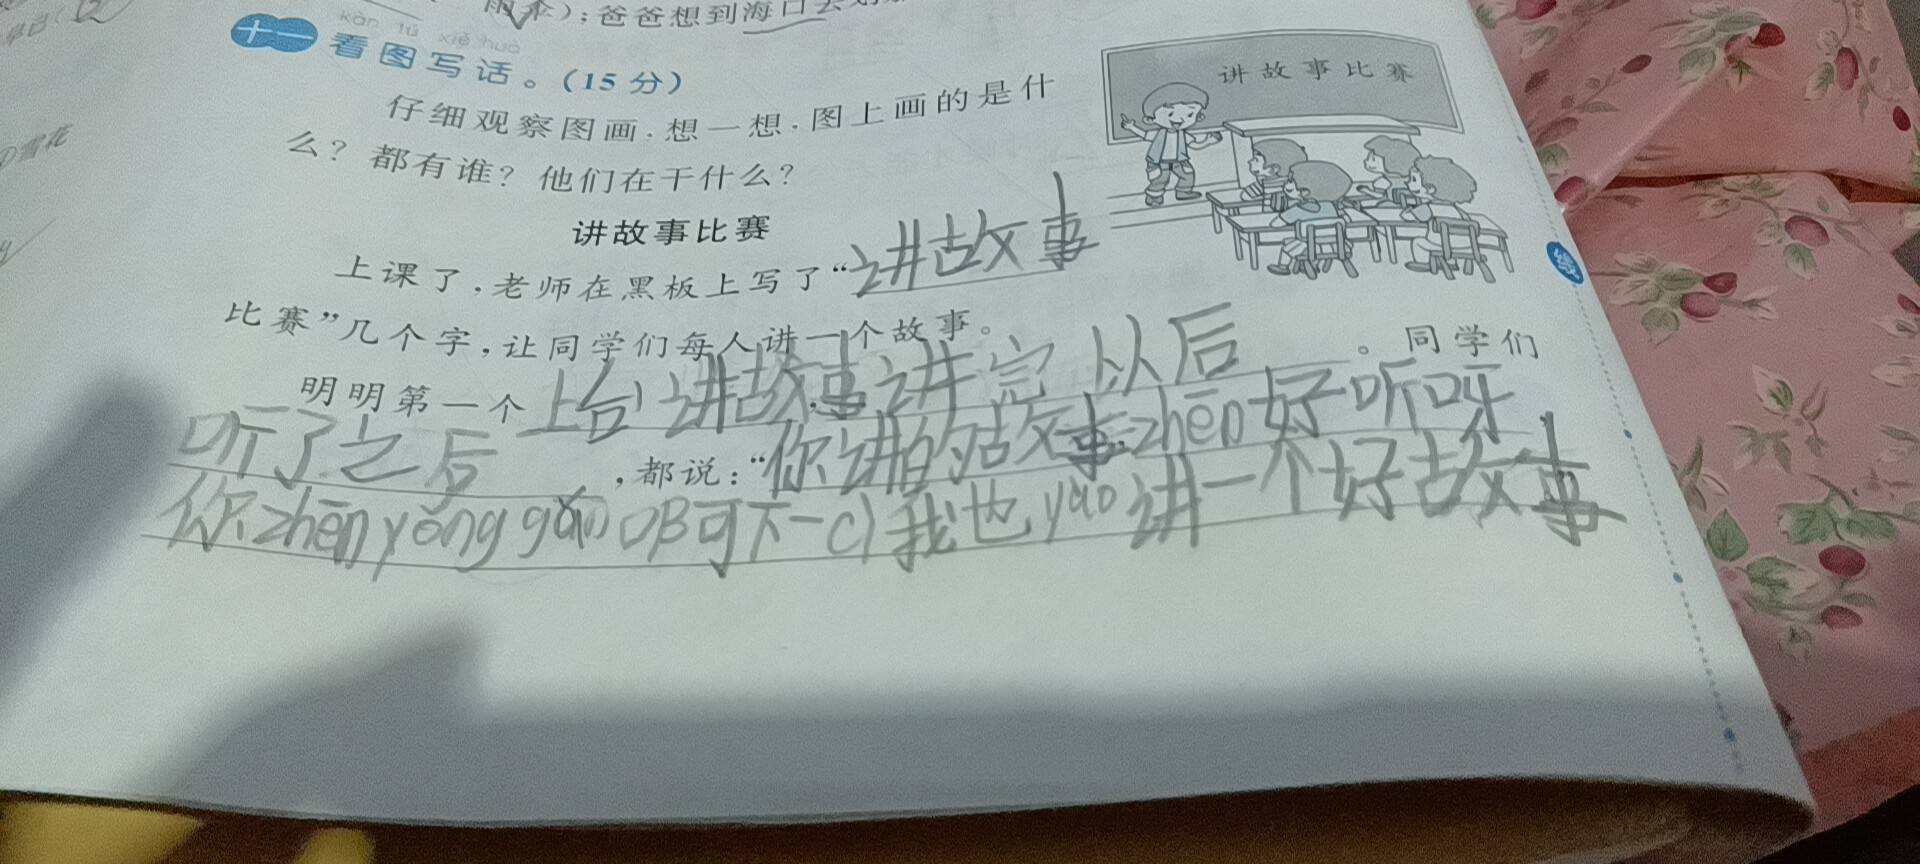 早已(
雨伞);爸爸想到海口去
kàn tú xiě huà
十一 看图写话。(15 分)
讲故事比赛
仔细观察图画,想一想,图上画的是什
么?都有谁?他们在干什么?
雪花
讲故事比赛
上课了,老师在黑板上写了“讲故事
比赛”几个字,让同学们每人讲一个故事。
明明第一个上台讲故事讲完以后。同学们
听了之后,都说:“你讲的故事zhēn好听呀
你zhēn yǒng gǎn 啊可下一cì我也yào讲一个好故事
线